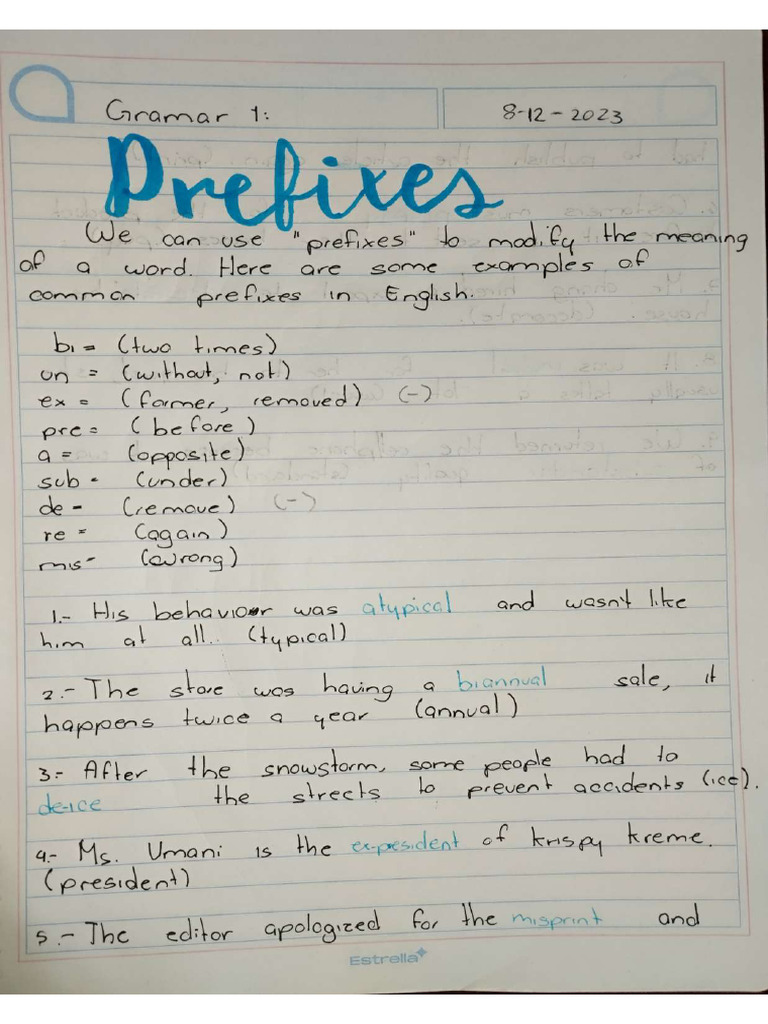 Gramar 1:
8-12-2023
Prefixes
We can use "prefixes" to modify the meaning
of a word. Here are some examples of
common prefixes in English.
bi = (two times)
un = (without, not)
ex = (former, removed) (-)
pre = (before)
a = (opposite)
sub - (under)
de - (remove) (-)
re = (again)
mis- (wrong)
1.- His behavior was atypical and wasn't like
him at all.. (typical)
2.- The store was having a biannual sale, it
happens twice a year (annual)
3.- After the snowstorm, some people had to
de-ice the streets to prevent accidents (ice).
4.- Ms. Umani is the ex-president of krispy kreme.
(president)
5.- The editor apologized for the misprint and
Estrella